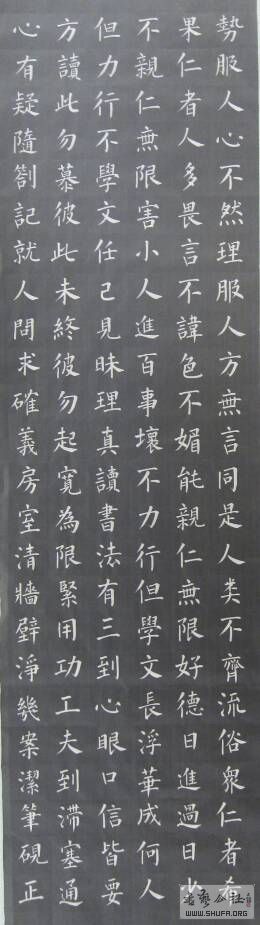 勢服人心不然理服人方無言同是人类不齊流俗眾仁者希
果仁者人多畏言不諱色不媚能親仁無限好德日進過日少
不親仁無限害小人進百事壞不力行但學文長浮華成何人
但力行不學文任己見昧理真讀書法有三到心眼口信皆要
方讀此勿慕彼此未終彼勿起寬為限緊用功工夫到滯塞通
心有疑隨劄記就人問求確義房室清牆壁淨幾案潔筆硯正
WWW.SHUFA.ORG